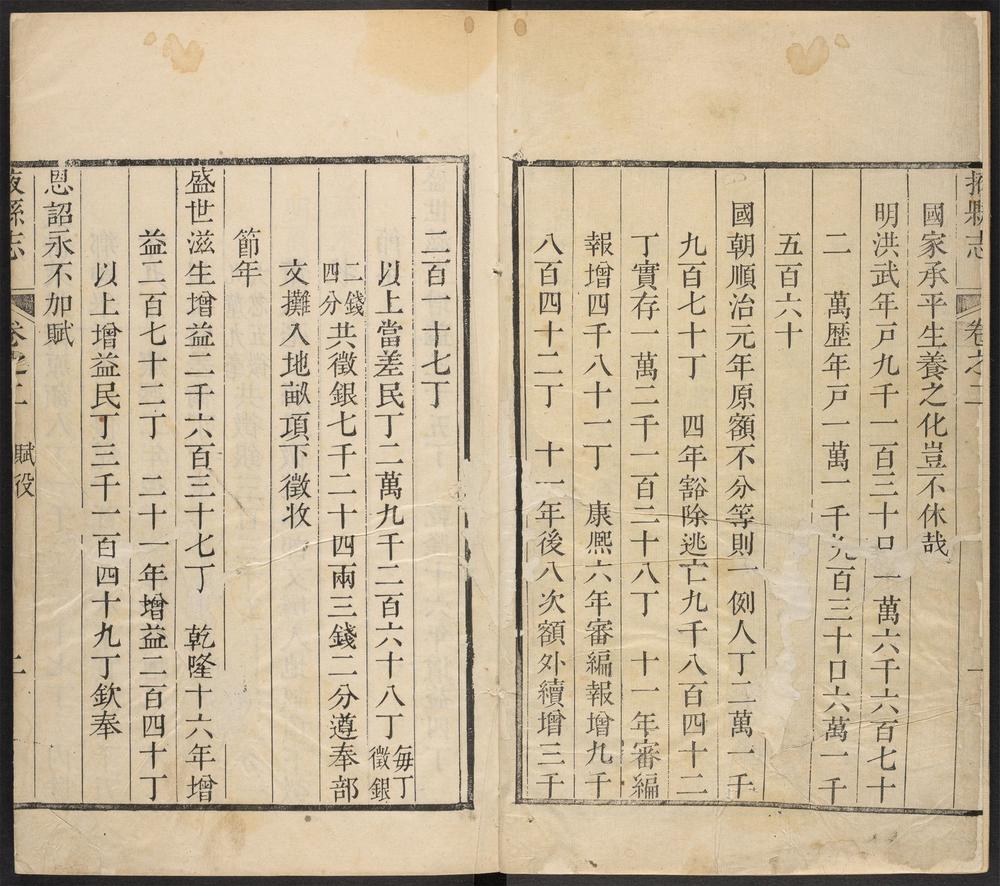 掖縣志 卷之二
國家承平生養之化豈不休哉
明洪武年戸九千一百三十口一萬六千六百七十
二 萬歷年戸一萬一千九百三十口六萬一千
五百六十
國朝順治元年原額不分等則一例人丁二萬一千
九百七十丁 四年豁除逃亡九千八百四十二
丁實存一萬二千一百二十八丁 十一年審編
報增四千八十一丁 康熙六年審編報增九千
八百四十二丁 十一年後八次額外續增三千
二百一十七丁
以上當差民丁二萬九千二百六十八丁每丁徵銀
二錢四分共徵銀七千二十四兩三錢二分遵奉部
文攤入地畝項下徵收
節年
盛世滋生增益二千六百三十七丁 乾隆十六年增
益二百七十二丁 二十一年增益二百四十丁
以上增益民丁三千一百四十九丁欽奉
恩詔永不加賦
掖縣志 卷之二 賦役 二